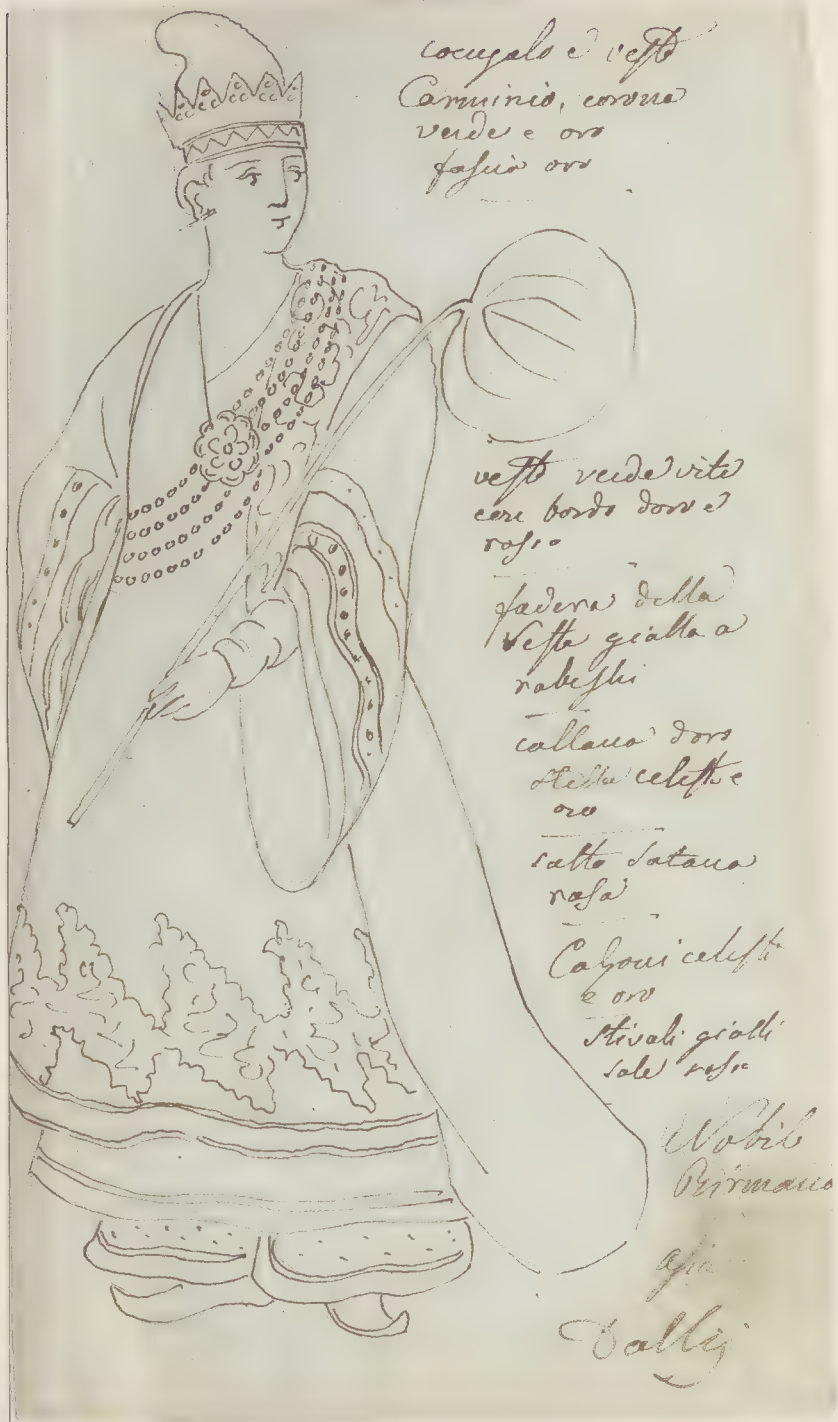 cocuzolo e veste
Carminio, corona
verde e oro
fascia oro
veste verde vite
con bordo doro e
rosso
fodera della
veste gialla a
rabeschi
collana doro
stella celeste
oro
sotto sotana
rosa
Calzoni celesti
e oro
stivali gialli
sole rosse
Nobile
Birmano
asia